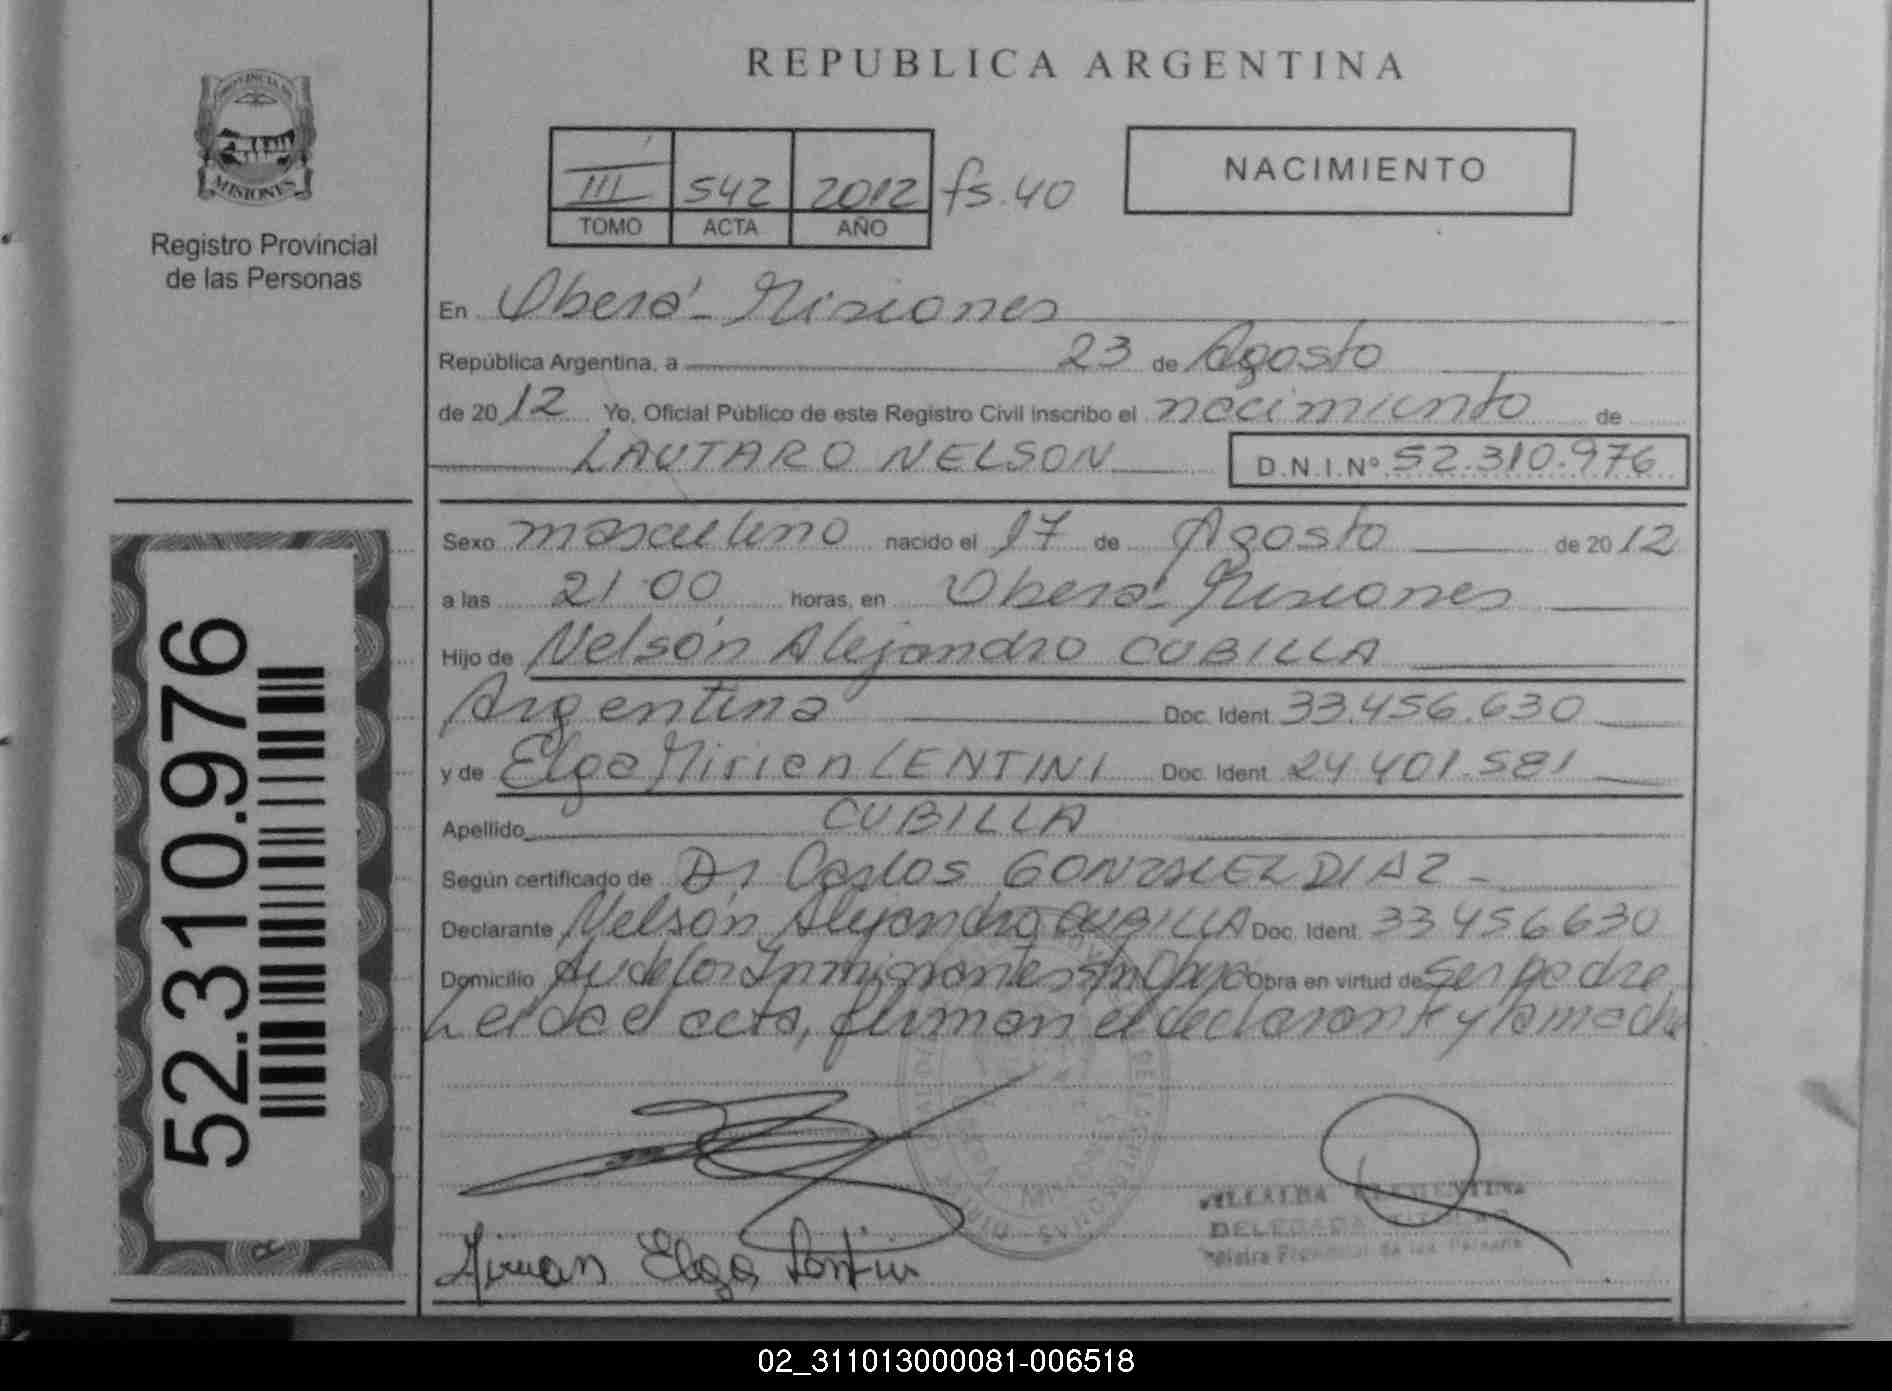 REPUBLICA ARGENTINA
PROVINCIA DE
MISIONES
Registro Provincial
de las Personas
III 542 2012 fs. 40
TOMO ACTA AÑO
NACIMIENTO
En Oberá - Misiones
República Argentina, a 23 de Agosto
de 2012 Yo, Oficial Público de este Registro Civil inscribo el nacimiento de
LAUTARO NELSON D.N.I.Nº 52.310.976
Sexo masculino nacido el 17 de Agosto de 2012
a las 21:00 horas, en Oberá - Misiones
Hijo de Nelsón Alejandro CUBILLA
Argentina Doc. Ident 33.456.630
y de Elga Mirien LENTINI Doc. Ident 24.401.581
Apellido CUBILLA
Según certificado de Dr Carlos GONZALEZ DIAZ -
Declarante Nelsón Alejandro CUBILLA Doc. Ident. 33 456 630
Domicilio Av de los Inmigrantes s/n Obra en virtud de Ser padre
Leída el acta, firman el declarante y la madre
Elga
VILLALBA CLEMENTINA
DELEGADA TITULAR
Provincial de las Personas
52.310.976
02_311013000081-006518